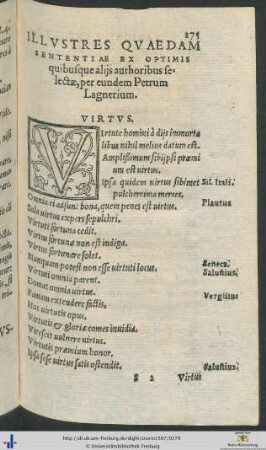 275
ILLVSTRES QVAEDAM
SENTENTIAE EX OPTIMIS
quibusque alijs authoribus se-
lectæ, per eundem Petrum
Lagnerium.
VIRTVS.
VIrtute homini à dijs immorta
libus nihil melius datum est.
Amplissimum sibijpsi præmi
um est uirtus.
Ipsa quidem uirtus sibimet Sil. Itali.
pulcherrima merces.
Omnia ei adsunt bona, quem penes est uirtus. Plautus
Sola uirtus expers sepulchri.
Virtuti fortuna cedit.
Virtus fortuna non est indiga.
Virtus fortunare solet.
Nunquam potest non esse uirtuti locus. Seneca.
Virtuti omnia parent. Salustius.
Domat omnia uirtus.
Famam extendere factis, Vergilius
Hoc uirtutis opus.
Virtutis & gloriæ comes inuidia.
Virescit uulnere uirtus.
Virtutis præmium honor.
Ipsa sese uirtus satis ostendit. Salustius.
S 2 Virtus
US-
http://dl.ub.uni-freiburg.de/diglit/cicero1587/0279
© Universitätsbibliothek Freiburg
Baden-Württemberg